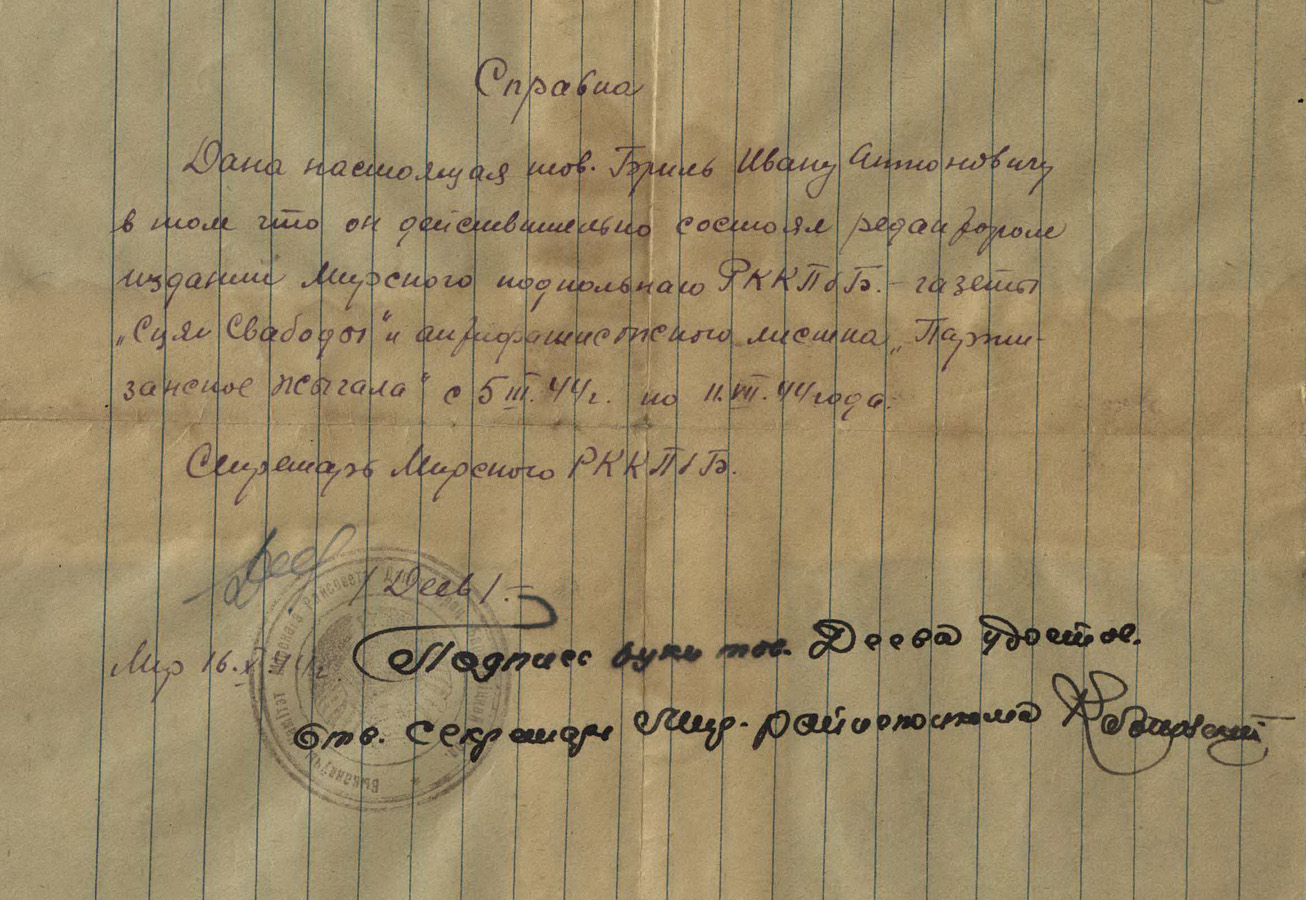 Справка
Дана настоящая тов. Бриль Ивану Антоновичу
в том что он действительно состоял редактором
изданий Мирского подпольнаго РККПбБ. - газеты
„Сцяг Свабоды" и антифашистского листка „Парти-
занское жыгала" с 5 III. 44 г. по 11. VII. 44 года.
Секретарь Мирского РККПбБ.
/ Деев /. -
Мир 16. 44 г.
Подпись руки тов. Деева удостов.
Отв. секретарь Мир. райисполкома